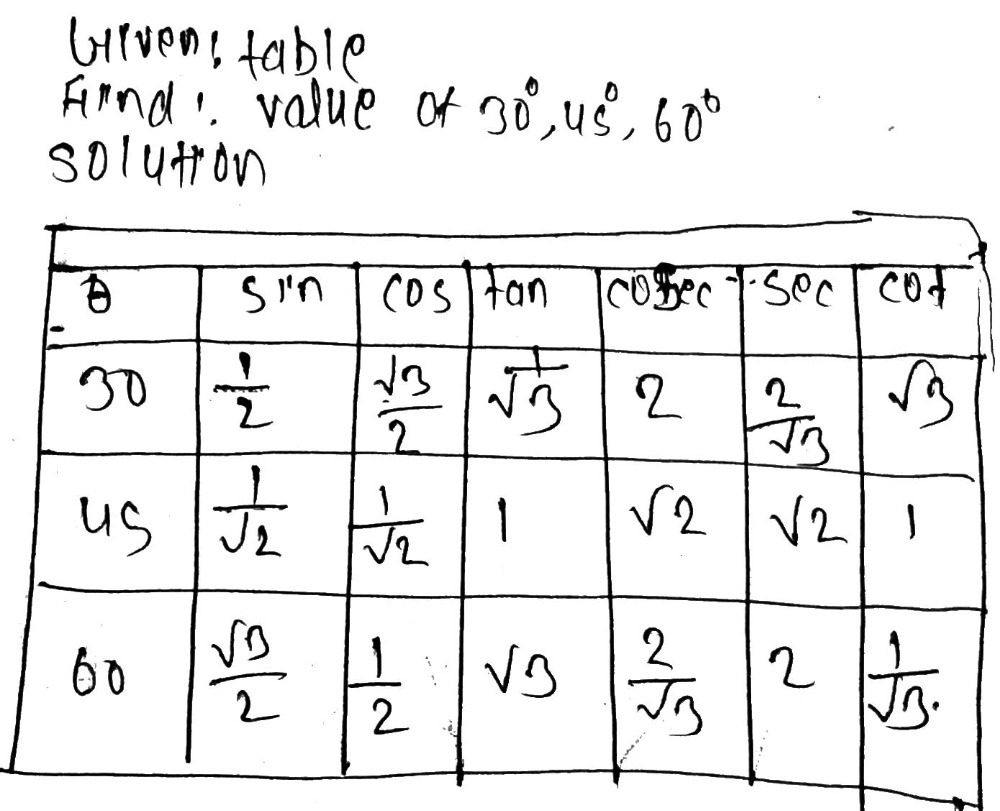 Given: table
Find: value of 30°, 45°, 60°
solution
θ sin cos tan cosec sec cot
30 1/2 √3/2 1/√3 2 2/√3 √3
45 1/√2 1/√2 1 √2 √2 1
60 √3/2 1/2 √3 2/√3 2 1/√3